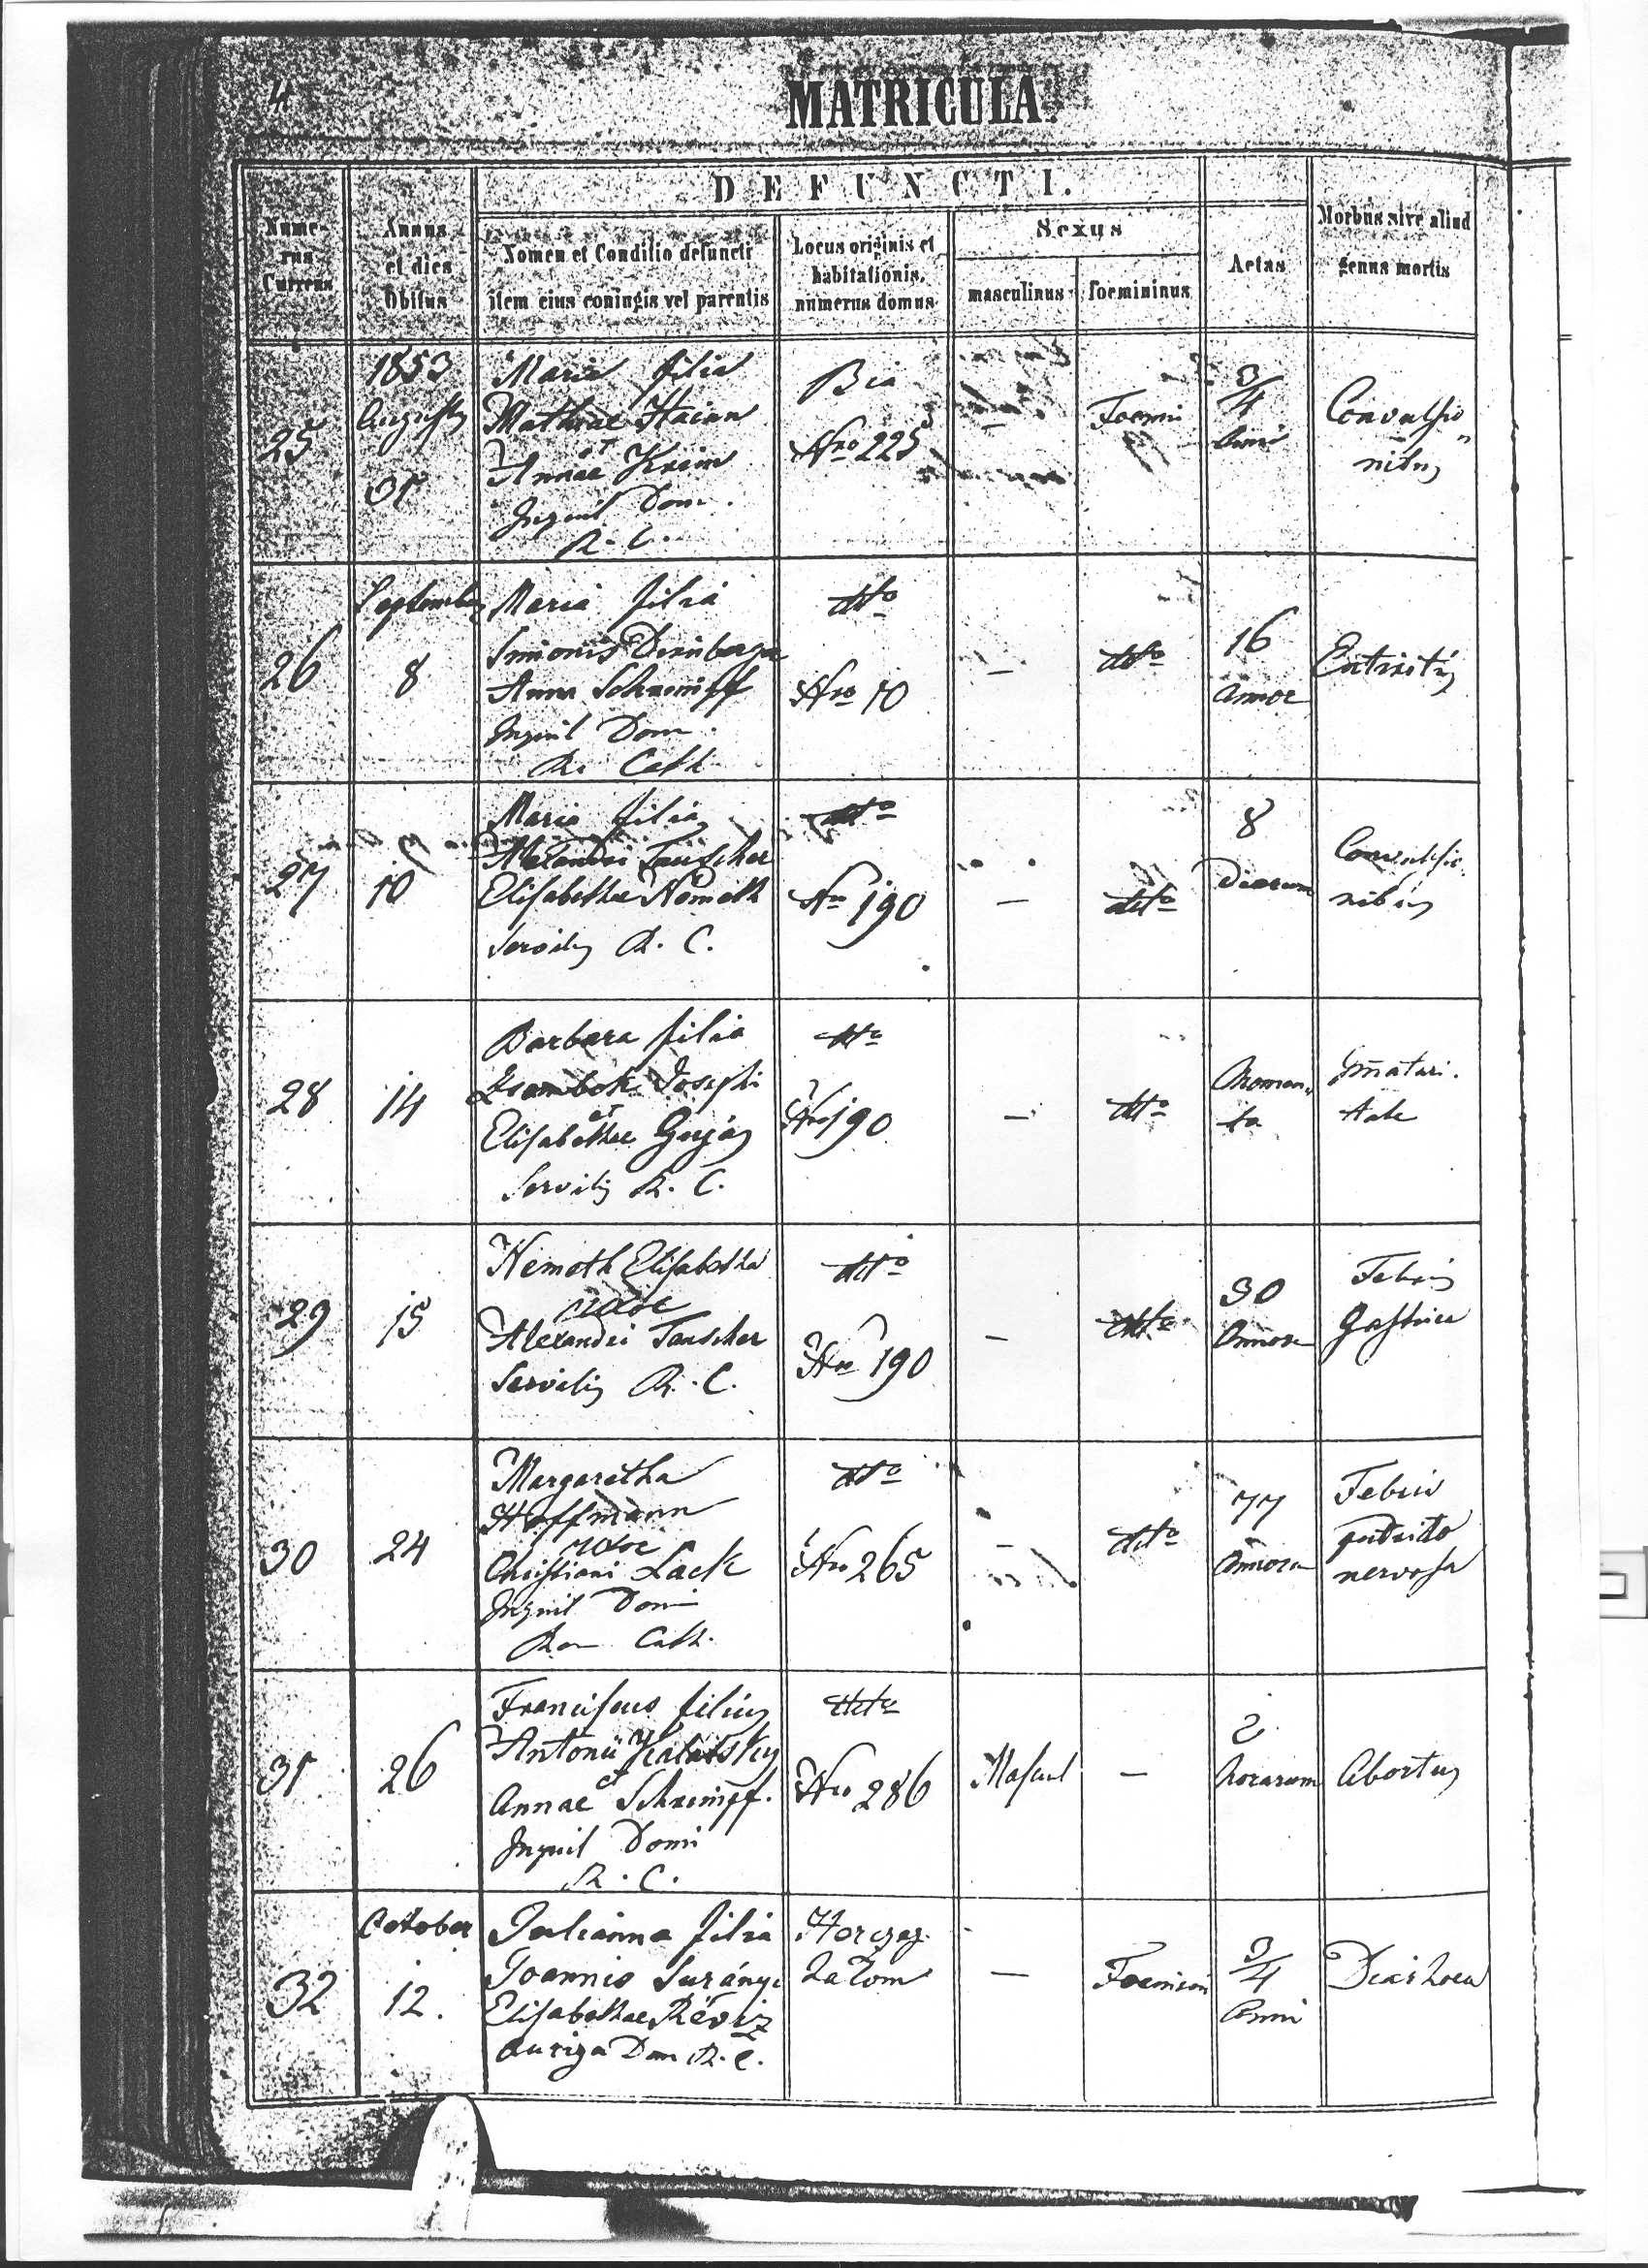 4
MATRICULA.
DEFUNCTI.
Nume-
rus
Currens
Annus
et dies
Obitus
Nomen et Conditio defuncti
item eius coniugis vel parentis
Locus originis et
habitationis,
numerus domus
Sexus
masculinus
foemininus
Aetas
Morbus sive aliud
genus mortis
25
1853
Augusty
31
Maria filia
Mathiae
et
Annae
Inquil Dom.
R. C.
Bia
Nro 225
Foemi
3/4
Anni
Convulsio
nibus
26
September
8
Maria filia
Simonis
Anna Schrimpf
Inquil Dom.
Ro Cath
dtto
Nro 10
—
dtto
16
Annor
27
10
Maria filia
Alexandri Tauscher
Elisabethae Nemeth
Servilis R. C.
dtto
Nro 190
—
dtto
8
Dierum
Convulsio
nibus
28
14
Barbara filia
Zsambok Josephi
et
Elisabethae Gujás
Servilis R. C.
dtto
Nro 190
—
dtto
Momen
ta
Immaturi
tate
29
15
Nemeth Elisabetha
uxor
Alexandri Tauscher
Servilis R. C.
dtto
Nro 190
—
dtto
30
Annor
Febris
Gastrica
30
24
Margaretha
Hoffmann
uxor
Christiani Lack
Inquil Dom
Rom Cath.
dtto
Nro 265
—
dtto
77
Annoru
Febris
putrido
nervosa
31
26
Franciscus filius
Antonii
et
Annae Schrimpff.
Inquil Domi
R. C.
dtto
Nro 286
Mascul
—
2
horarum
Abortus
32
October
12.
Julianna filia
Joannis Surányi
Elisabethae Réviz
Auriga Dom R. C.
Herczeg
halom
—
Foeminin
3/4
Anni
Diarhoea